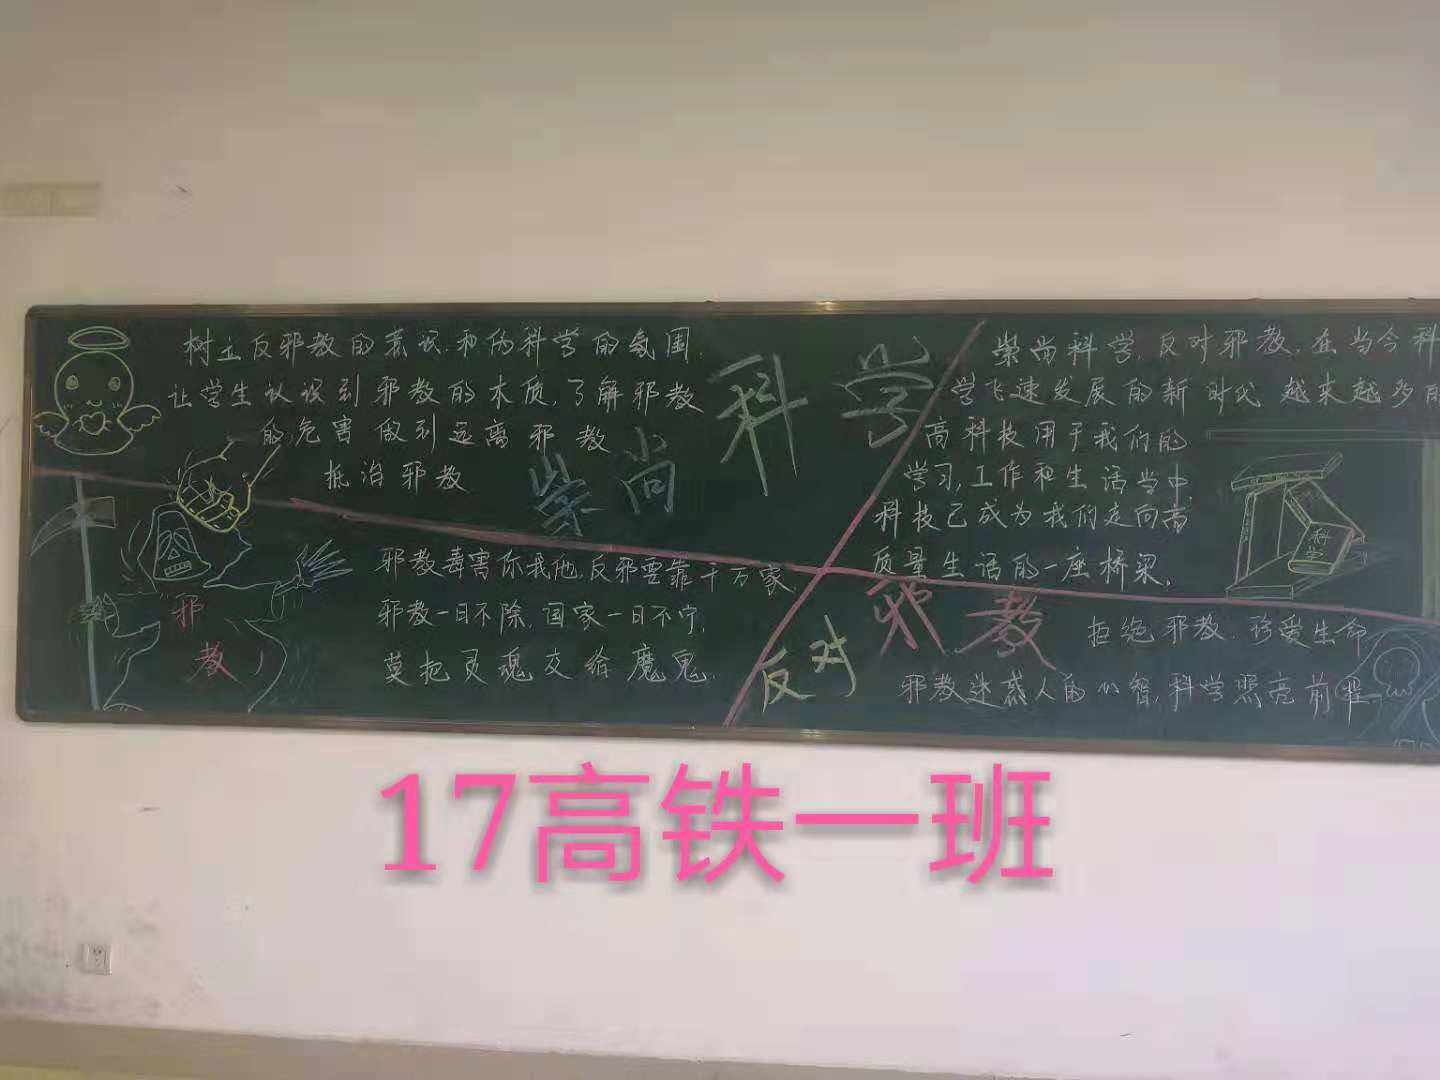 树立反邪教的意识和伪科学的氛围,
让学生认识到邪教的本质,了解邪教
的危害做到远离邪教
抵治邪教
崇尚科学
邪教毒害你我他,反邪要靠千万家
邪教一日不除,国家一日不宁,
莫把灵魂交给魔鬼.
邪
教
崇尚科学,反对邪教,在当今科
学飞速发展的新时代越来越多的
高科技用于我们的
学习,工作和生活当中,
科技已成为我们走向高
质量生活的一座桥梁,
科学
反对邪教
拒绝邪教.珍爱生命
邪教迷惑人的心智,科学照亮前程
17高铁一班